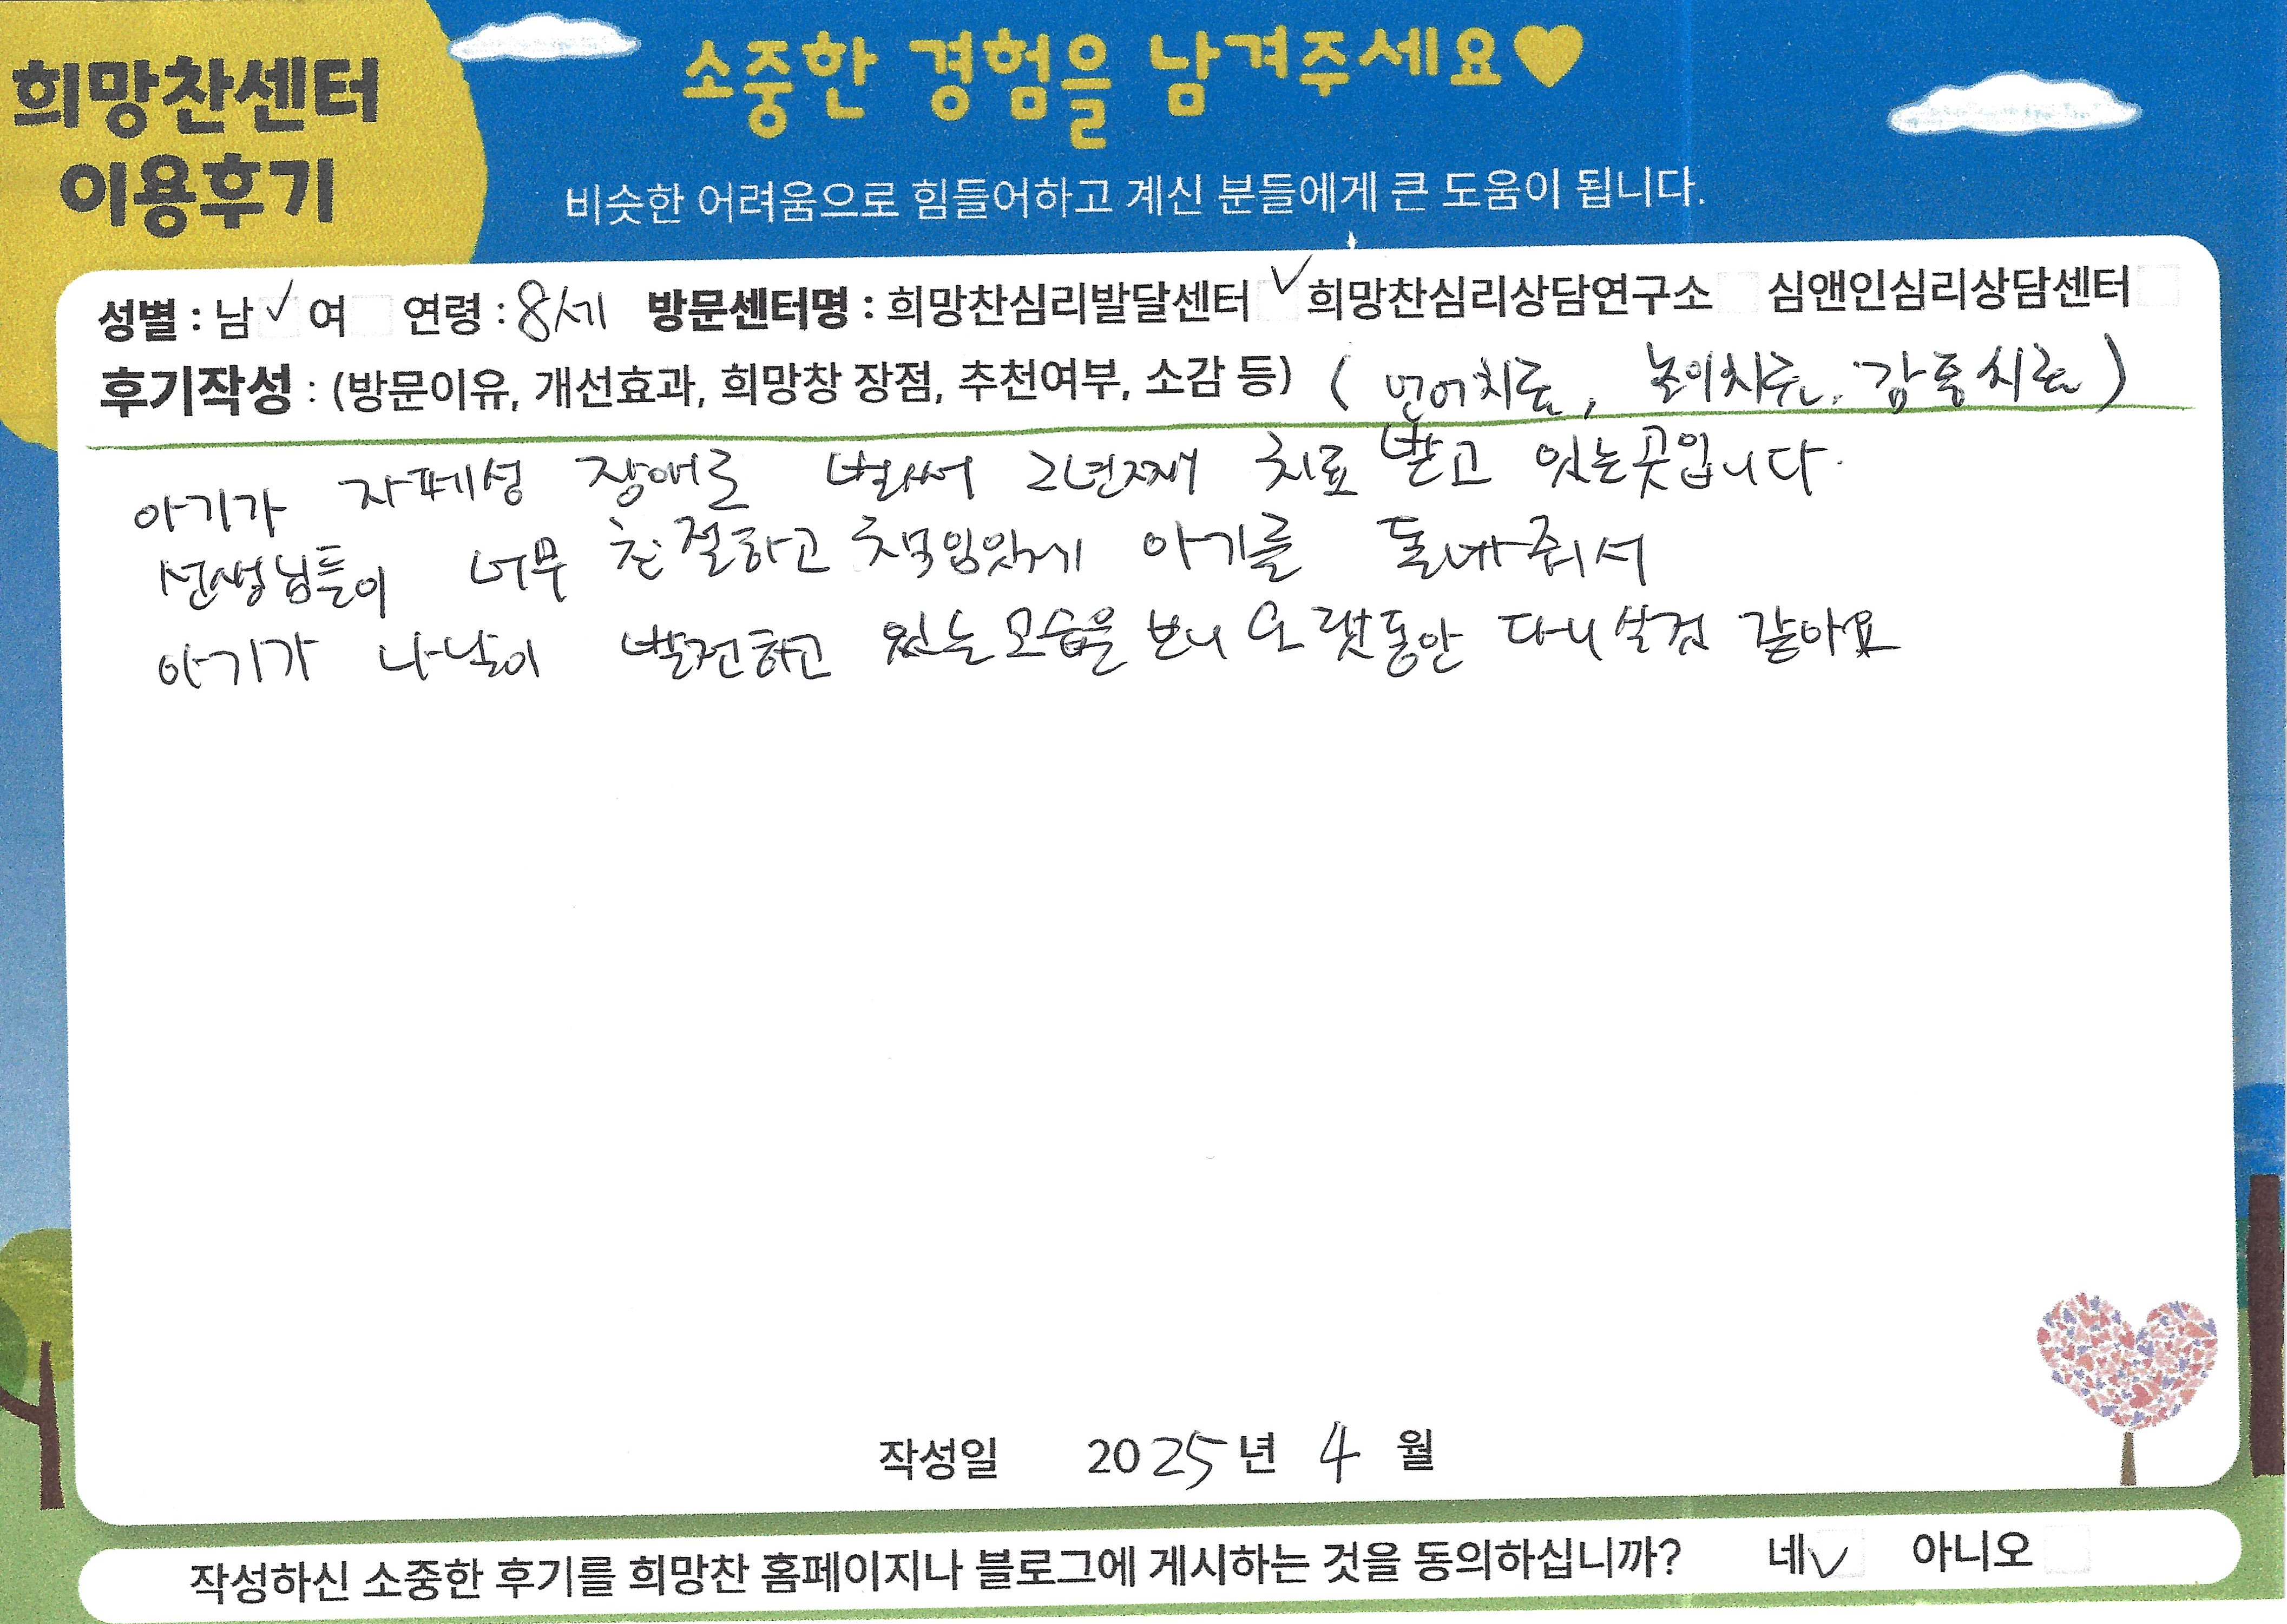 희망찬센터
이용후기
소중한 경험을 남겨주세요♥
비슷한 어려움으로 힘들어하고 계신 분들에게 큰 도움이 됩니다.
성별 : 남 ✓ 여 연령 : 8세 방문센터명 : 희망찬심리발달센터 ✓ 희망찬심리상담연구소 심앤인심리상담센터
후기작성 : (방문이유, 개선효과, 희망창 장점, 추천여부, 소감 등) ( 언어치료, 놀이치료, 감통치료 )
아기가 자페성 장애로 벌써 2년째 치료 받고 있는곳입니다.
선생님들이 너무 친절하고 책임있게 아기를 돌봐줘서
아기가 나날이 발전하고 있는 모습을 보니 오랫동안 다니실것 같아요
작성일 2025년 4월
작성하신 소중한 후기를 희망찬 홈페이지나 블로그에 게시하는 것을 동의하십니까? 네 ✓ 아니오